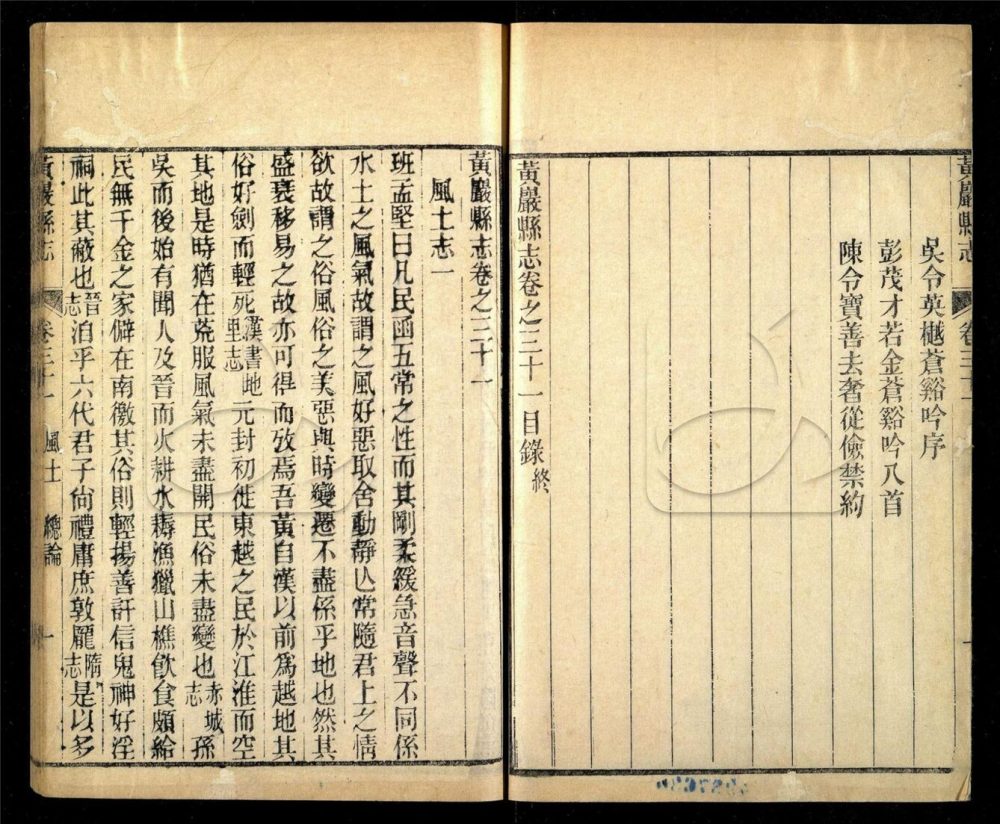 黃巖縣志
卷三十一
吳令英樾蒼谿吟序
彭茂才若金蒼谿吟八首
陳令寶善去奢從儉禁約
黃巖縣志卷之三十一目錄終
黃巖縣志卷之三十一
風土志一
班孟堅曰凡民函五常之性而其剛柔緩急音聲不同係
水土之風氣故謂之風好惡取舍動靜亾常隨君上之情
欲故謂之俗風俗之美惡與時變遷不盡係乎地也然其
盛衰移易之故亦可得而攷焉吾黃自漢以前爲越地其
俗好劍而輕死漢書地里志元封初徙東越之民於江淮而空
其地是時猶在荒服風氣未盡開民俗未盡變也赤城志孫
吳而後始有聞人及晉而火耕水耨漁獵山樵飮食頗給
民無千金之家僻在南徼其俗則輕揚善訐信鬼神好淫
祠此其蔽也晉志洎乎六代君子尙禮庸庶敦龐隋志是以多
黃巖縣志 卷三十一 風土 總論 一